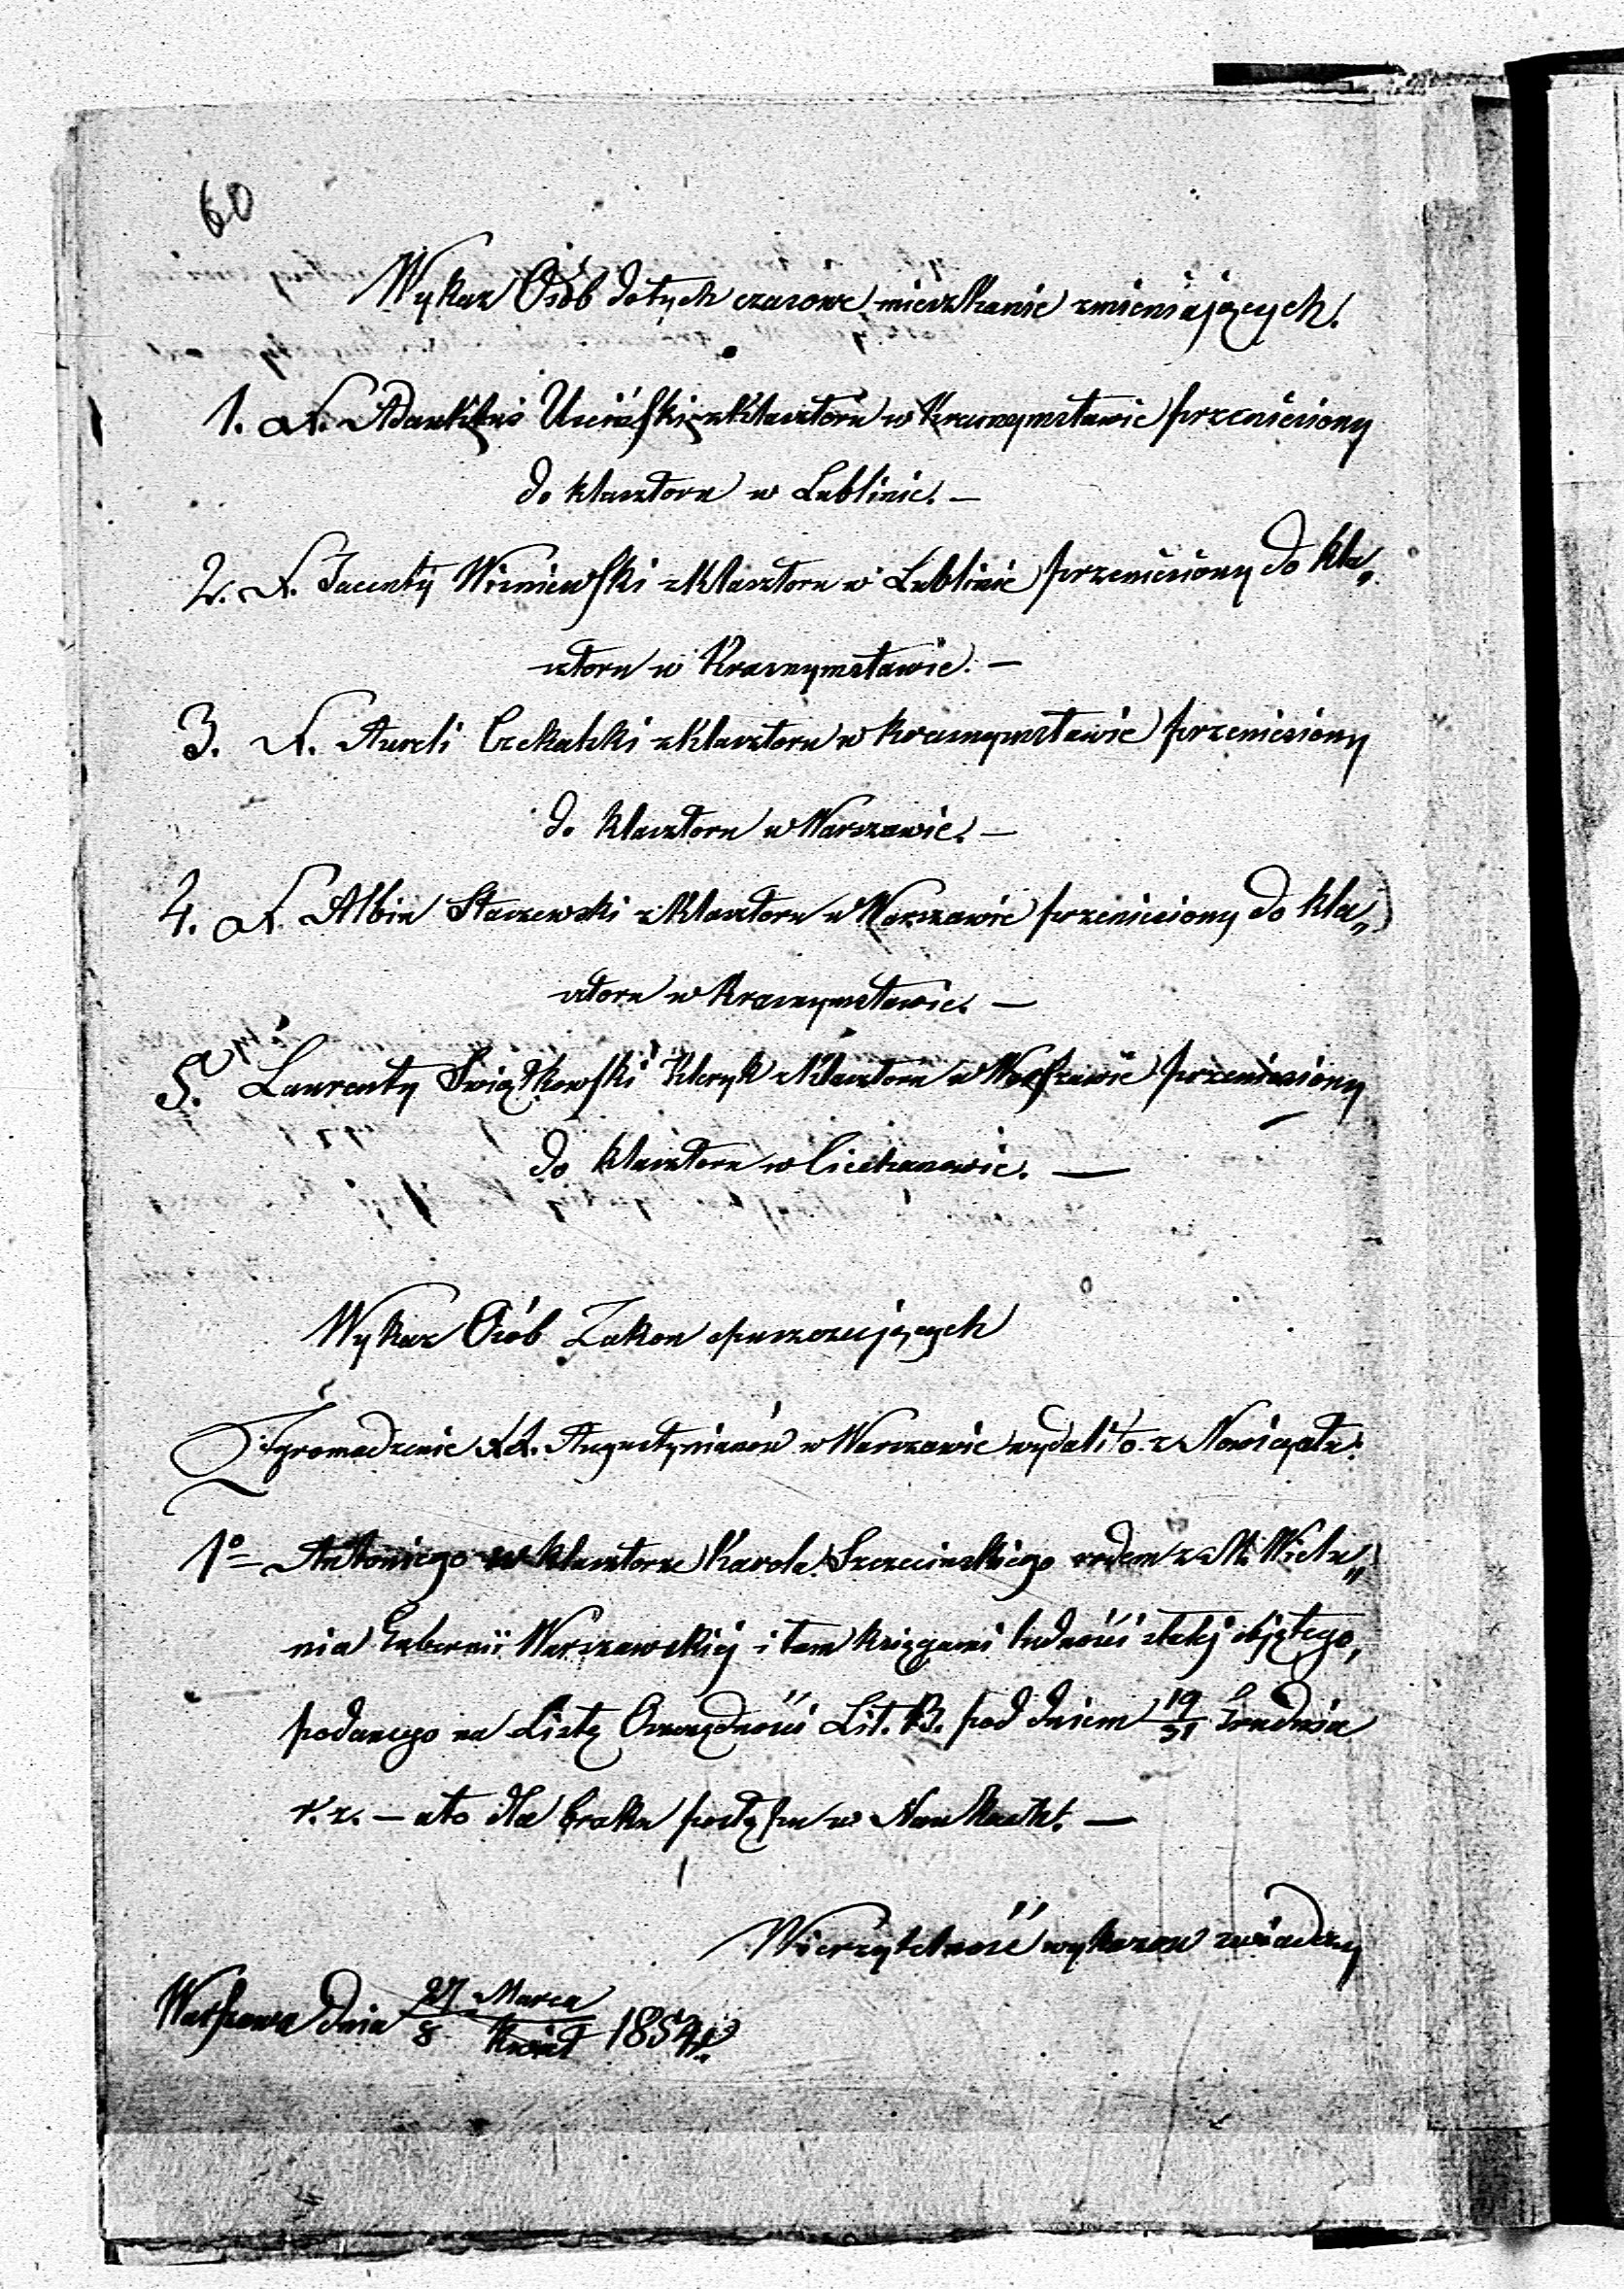 60
Wykaz Osób dotychczasowe mieszkanie zmieniających.
1. X. Adaukkus Uciński z Klasztoru w Krasnymstawie przeniesiony
do klasztoru w Lublinie. —
2. X. Jacenty Wiśniewski z Klasztoru w Lublinie przeniesiony do kla„
sztoru w Krasnymstawie. —
3. X. Aureli Czekalski z Klasztoru w Krasnymstawie przeniesiony
do klasztoru w Warszawie. —
4. X. Albin Staszewski z Klasztoru w Warszawie przeniesiony do kla„
sztoru w Krasnymstawie. —
5. Laurenty Świątkowski Kleryk z Klasztoru w Warszawie przeniesiony
do klasztoru w Ciechanowie. —
Wykaz Osób Zakon opuszczających
Zgromadzenie XX. Augustynianów w Warszawie wydaliło z Nowicyatu.
1o Antoniego w klasztorze Karola Szczecińskiego rodem z M. Wielu„
nia Gubernii Warszawskiej i tam księgami ludności stałej objętego,
podanego na Listę Lit. B. pod dniem 19/31 Grudnia
r. z. — a to dla braku postępu w Naukach. —
Wierzytelność wykazów zaświadczy
Warszawa dnia 27 Marca / 8 Kwiet 1854 r.